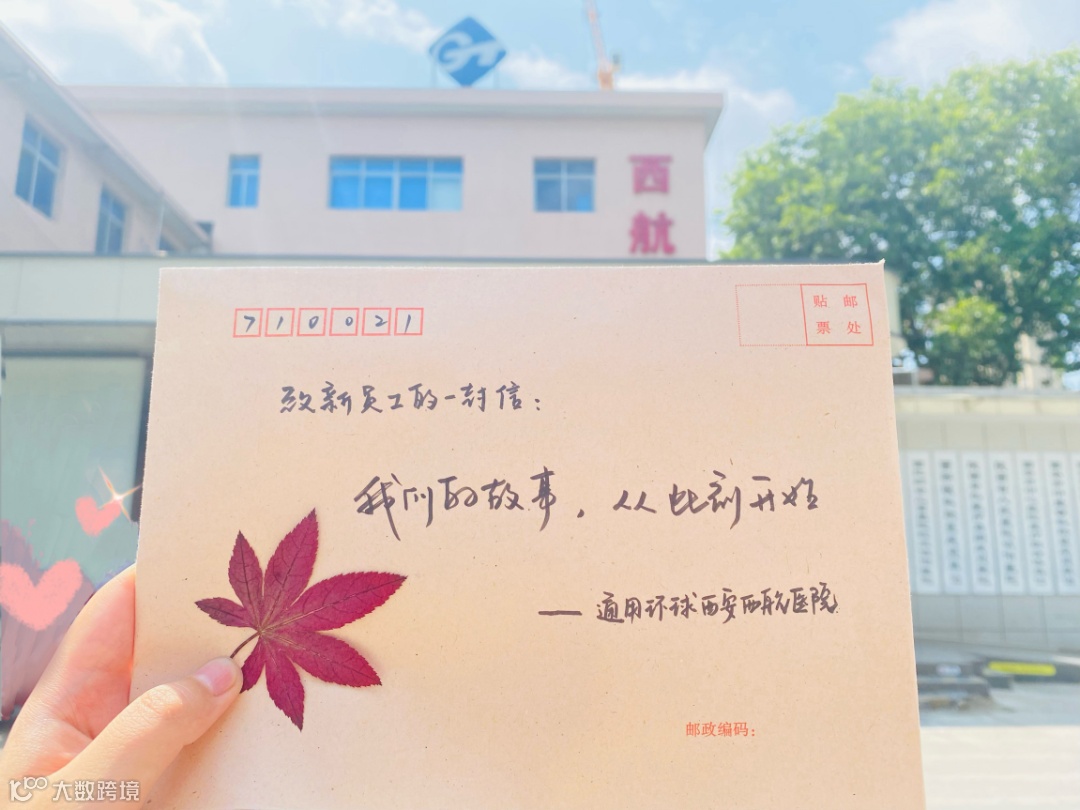 GT
西
航
710021
贴 邮
票 处
致新员工的一封信：
我们的故事，从此刻开始
—— 通用环球西安西航医院
邮政编码：
大数跨境